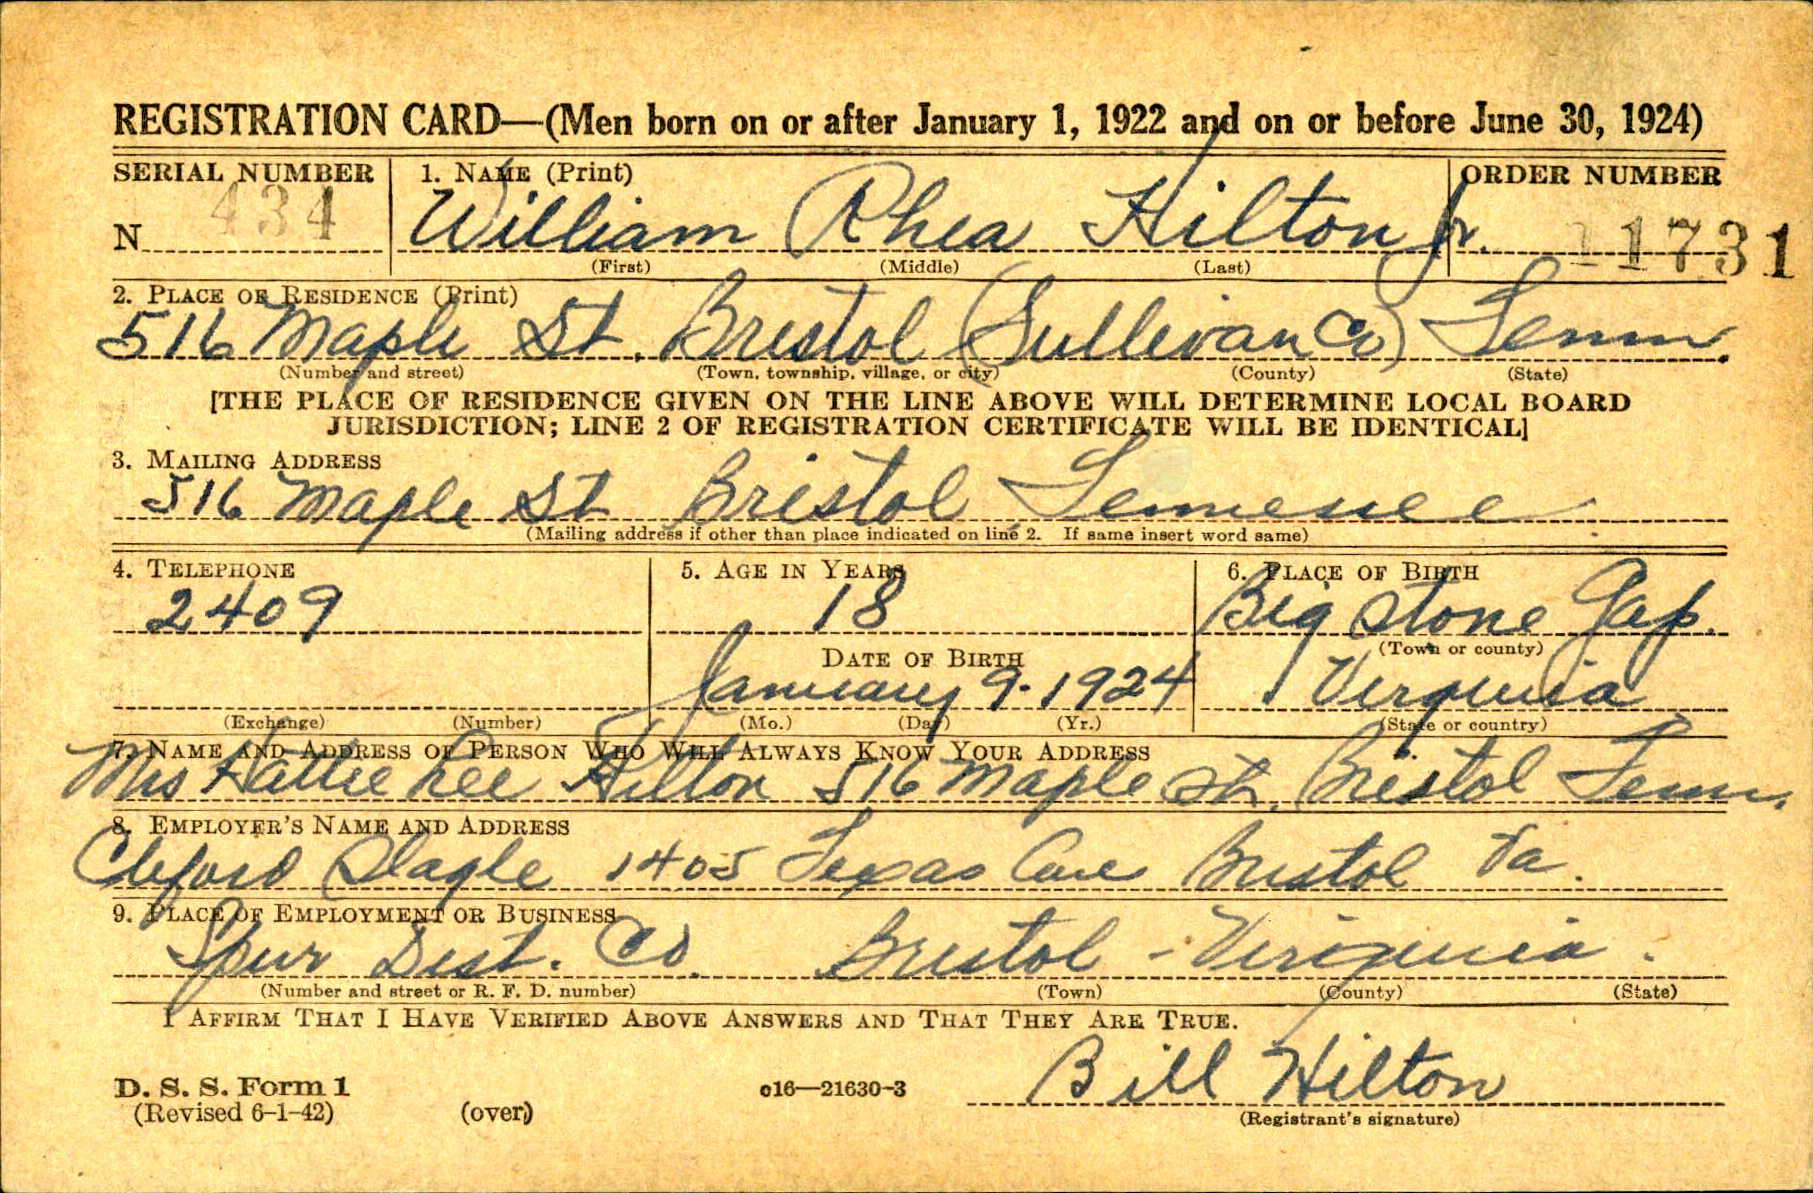 REGISTRATION CARD—(Men born on or after January 1, 1922 and on or before June 30, 1924)
SERIAL NUMBER 1. NAME (Print) ORDER NUMBER
N 434 William Rhea Hilton Jr. 11731
(First) (Middle) (Last)
2. PLACE OF RESIDENCE (Print)
516 Maple St. Bristol (Sullivan Co) Tenn.
(Number and street) (Town, township, village, or city) (County) (State)
[THE PLACE OF RESIDENCE GIVEN ON THE LINE ABOVE WILL DETERMINE LOCAL BOARD
JURISDICTION; LINE 2 OF REGISTRATION CERTIFICATE WILL BE IDENTICAL]
3. MAILING ADDRESS
516 Maple St Bristol, Tennessee
(Mailing address if other than place indicated on line 2. If same insert word same)
4. TELEPHONE 5. AGE IN YEARS 6. PLACE OF BIRTH
2409 18 Big Stone Gap.
(Town or county)
DATE OF BIRTH
January 9-1924 Virginia
(Exchange) (Number) (Mo.) (Day) (Yr.) (State or country)
7. NAME AND ADDRESS OF PERSON WHO WILL ALWAYS KNOW YOUR ADDRESS
Mrs Hattie Lee Hilton 516 Maple St. Bristol Tenn.
8. EMPLOYER'S NAME AND ADDRESS
Cleford Slagle 1405 Texas Ave Bristol Va.
9. PLACE OF EMPLOYMENT OR BUSINESS
Spur Dist. Co. Bristol - Virginia.
(Number and street or R. F. D. number) (Town) (County) (State)
I AFFIRM THAT I HAVE VERIFIED ABOVE ANSWERS AND THAT THEY ARE TRUE.
Bill Hilton
D. S. S. Form 1 c16—21630-3
(Revised 6-1-42) (over) (Registrant's signature)